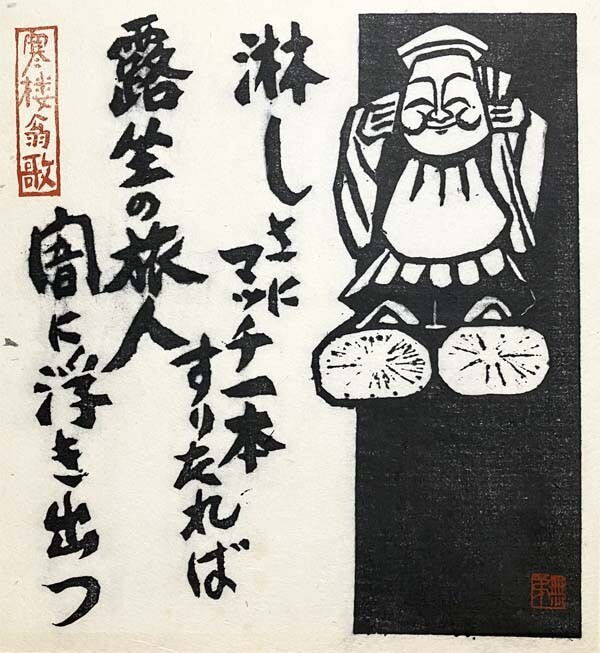 淋しさに
マッチ一本
すりたれば
露生の旅人
闇に浮き出つ
寒楼翁歌